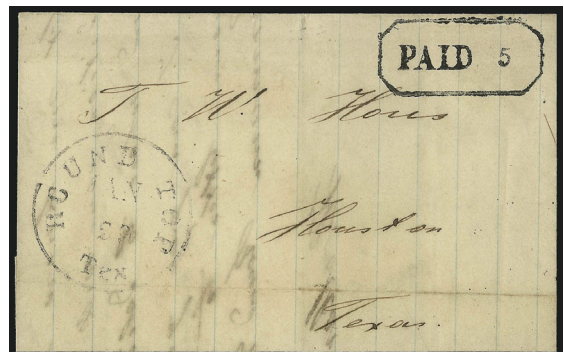 PAID 5
T W. Hous
ROUND TOP
Tex
Houston
Texas.